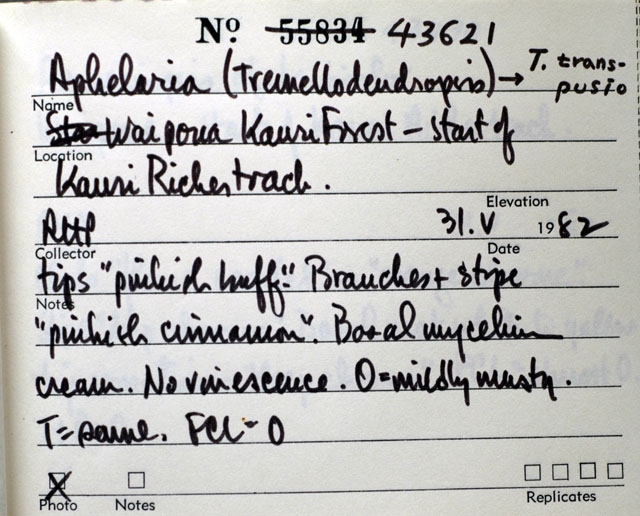 Nº 55834 43621
Aphelaria (Tremellodendropsis) → T. trans-
pusio
Name
Waipoua Kauri Forest - start of
Location
Kauri Riches track.
Elevation
RHP 31.V 1982
Collector Date
tips "pinkish buff." Branches + stipe
Notes
"pinkish cinnamon". Basal mycelium
cream. No virescence. O=mildly musty.
T=same. FCL- O
Photo Notes Replicates